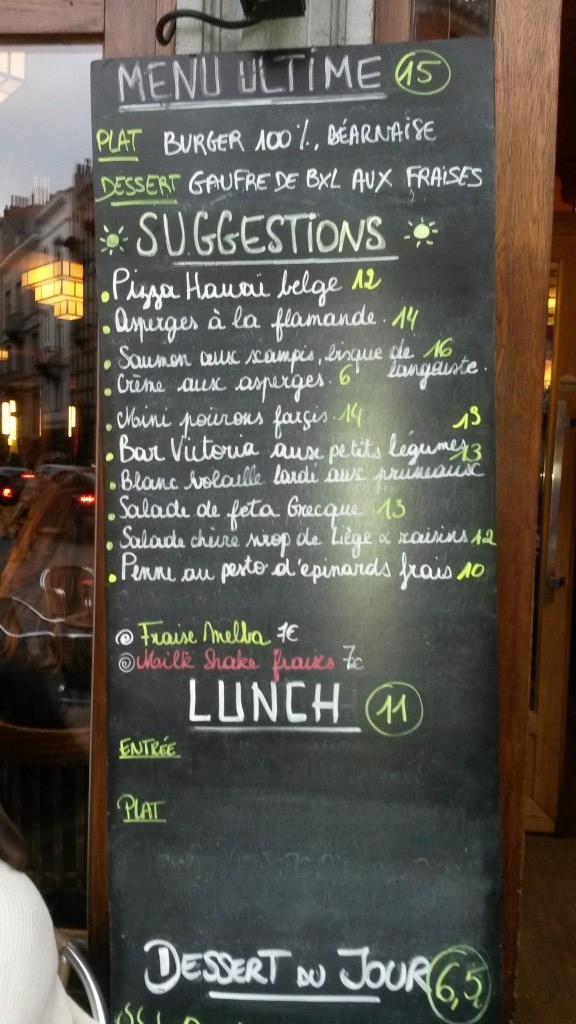 MENU ULTIME 15
PLAT BURGER 100%, BÉARNAISE
DESSERT GAUFRE DE BXL AUX FRAISES
SUGGESTIONS
Pizza Hawaï belge 12
Asperges à la flamande. 14
Saumon aux scampis, bisque de langouste. 16
Crème aux asperges. 6
Mini poivrons farçis. 14
Bar Victoria aux petits légumes 19
Blanc volaille lardé aux pruneaux 13
Salade de feta Grecque. 13
Salade chèvre sirop de Liège & raisins 12
Penne au pesto d'épinards frais 10
Fraise Melba 7€
Milk Shake fraises 7€
LUNCH 11
ENTRÉE
PLAT
DESSERT DU JOUR 6,5